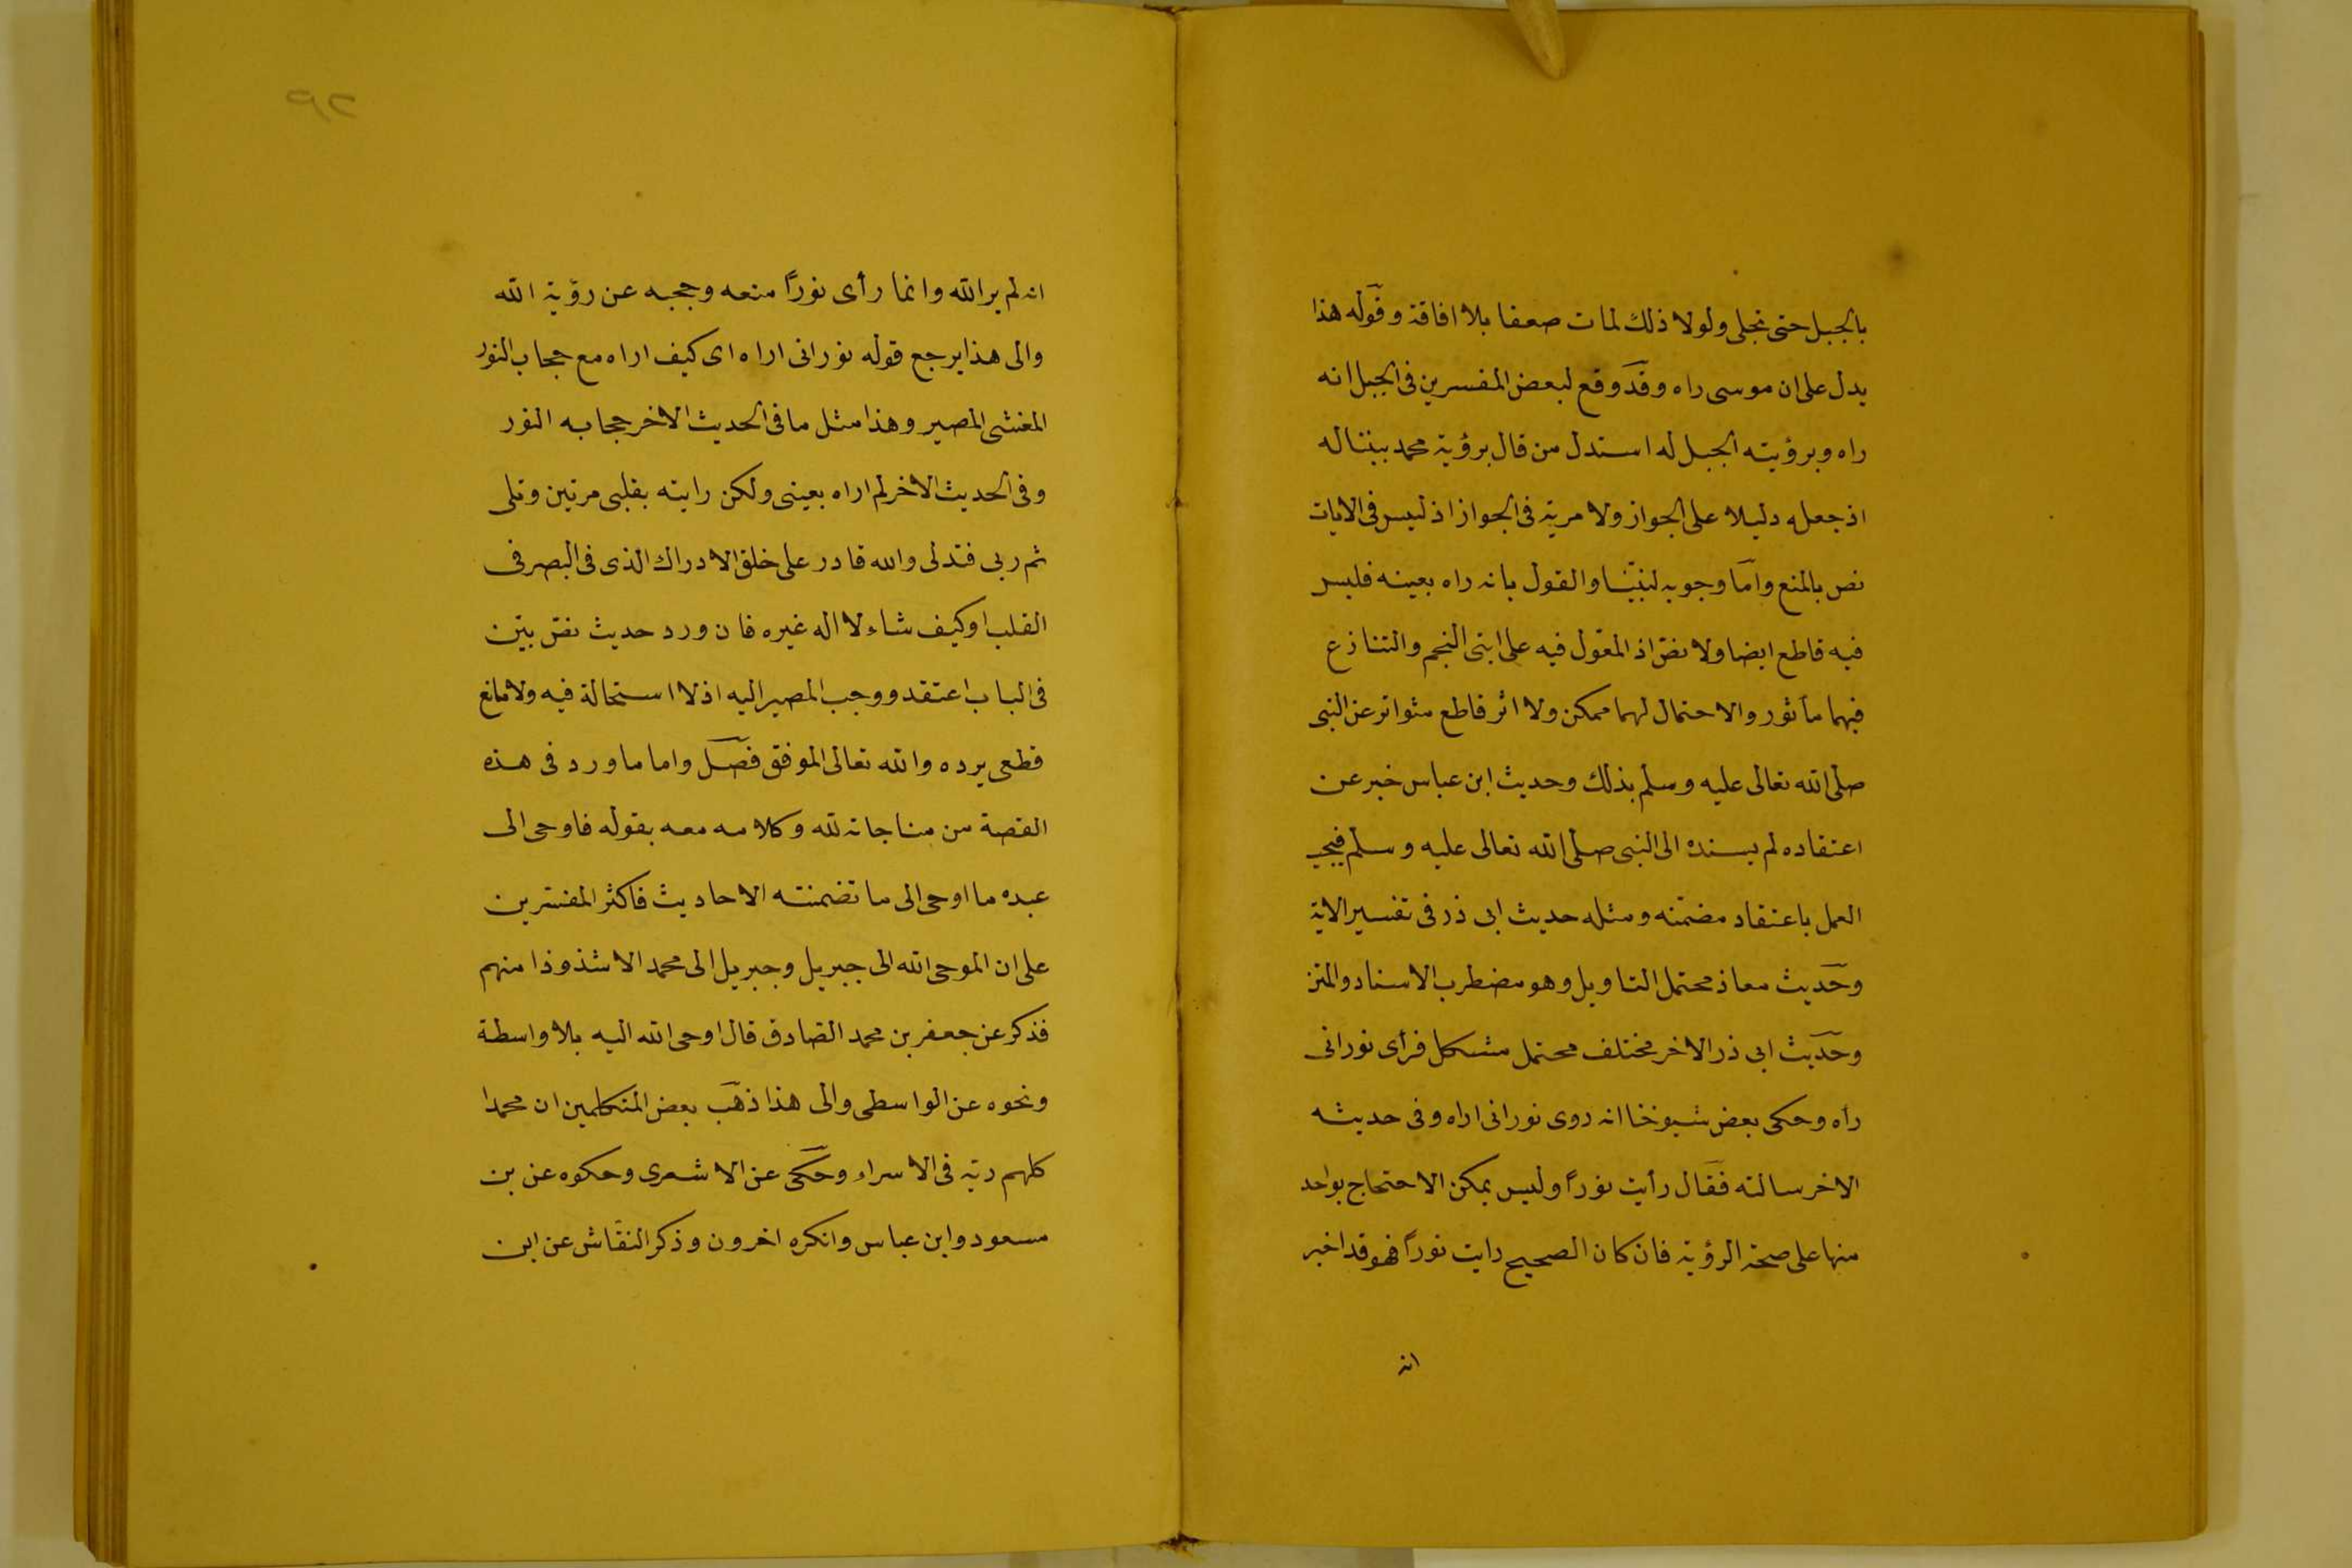 بالجبل حتى تجلى ولولا ذلك لمات صعقا بلا افاقة وقوله هذا
يدل على ان موسى راه وقد وقع لبعض المفسرين فى الجبل انه
راه وبرؤيته الجبل له استدل من قال برؤية محمد بيننا له
اذ جعله دليلا على الجواز ولا مرية فى الجواز اذ ليس فى الايات
نص بالمنع واما وجوبه لنبيّنا والقول بانه راه بعينه فليس
فيه قاطع ايضا ولا نصّ اذ المعول فيه على ايتى النجم والتنازع
فيهما مأثور والاحتمال لهما ممكن ولا اثر قاطع متواتر عن النبى
صلى الله تعالى عليه وسلم بذلك وحديث ابن عباس خبر عن
اعتقاده لم يسنده الى النبى صلى الله تعالى عليه وسلم فيجب
العمل باعتقاد مضمّنه ومثله حديث ابى ذر فى تفسير الاية
وحديث معاذ محتمل التاويل وهو مضطرب الاسناد والمتن
وحديث ابى ذر الاخر مختلف محتمل مشكل فرأى نورانى
راه وحكى بعض شيوخنا انه روى نورانى اراه وفى حديثه
الاخر سالته فقال رأيت نوراً وليس يمكن الاحتجاج بواحد
منها على صحة الرؤية فان كان الصحيح رايت نوراً فهو قد اخبر
انه
٩٢
انه لم ير الله وانما رأى نوراً منعه وحجبه عن رؤية الله
والى هذا يرجع قوله نورانى اراه اى كيف اراه مع حجاب النور
المغشى المصير وهذا مثل ما فى الحديث الاخر حجابه النور
وفى الحديث الاخر لم اراه بعينى ولكن رايته بقلبى مرتين وتلى
ثم ربى فتدلى والله قادر على خلق الادراك الذى فى البصر فى
القلب او كيف شاء لا اله غيره فان ورد حديث نصّ بيّن
فى الباب اعتقد ووجب المصير اليه اذ لا استحالة فيه ولا مانع
قطعى يرده والله تعالى الموفق فصل واما ما ورد فى هذه
القصة من مناجاته لله وكلامه معه بقوله فاوحى الى
عبده ما اوحى الى ما تضمنته الاحاديث فاكثر المفسّرين
على ان الموحى الله الى جبريل وجبريل الى محمد الا شذوذا منهم
فذكر عن جعفر بن محمد الصّادق قال اوحى الله اليه بلا واسطة
ونحوه عن الواسطى والى هذا ذهب بعض المتكلمين ان محمدا
كلهم ربّه فى الاسراء وحكى عن الاشعرى وحكوه عن بن
مسعود وابن عباس وانكره اخرون وذكر النقّاش عن ابن